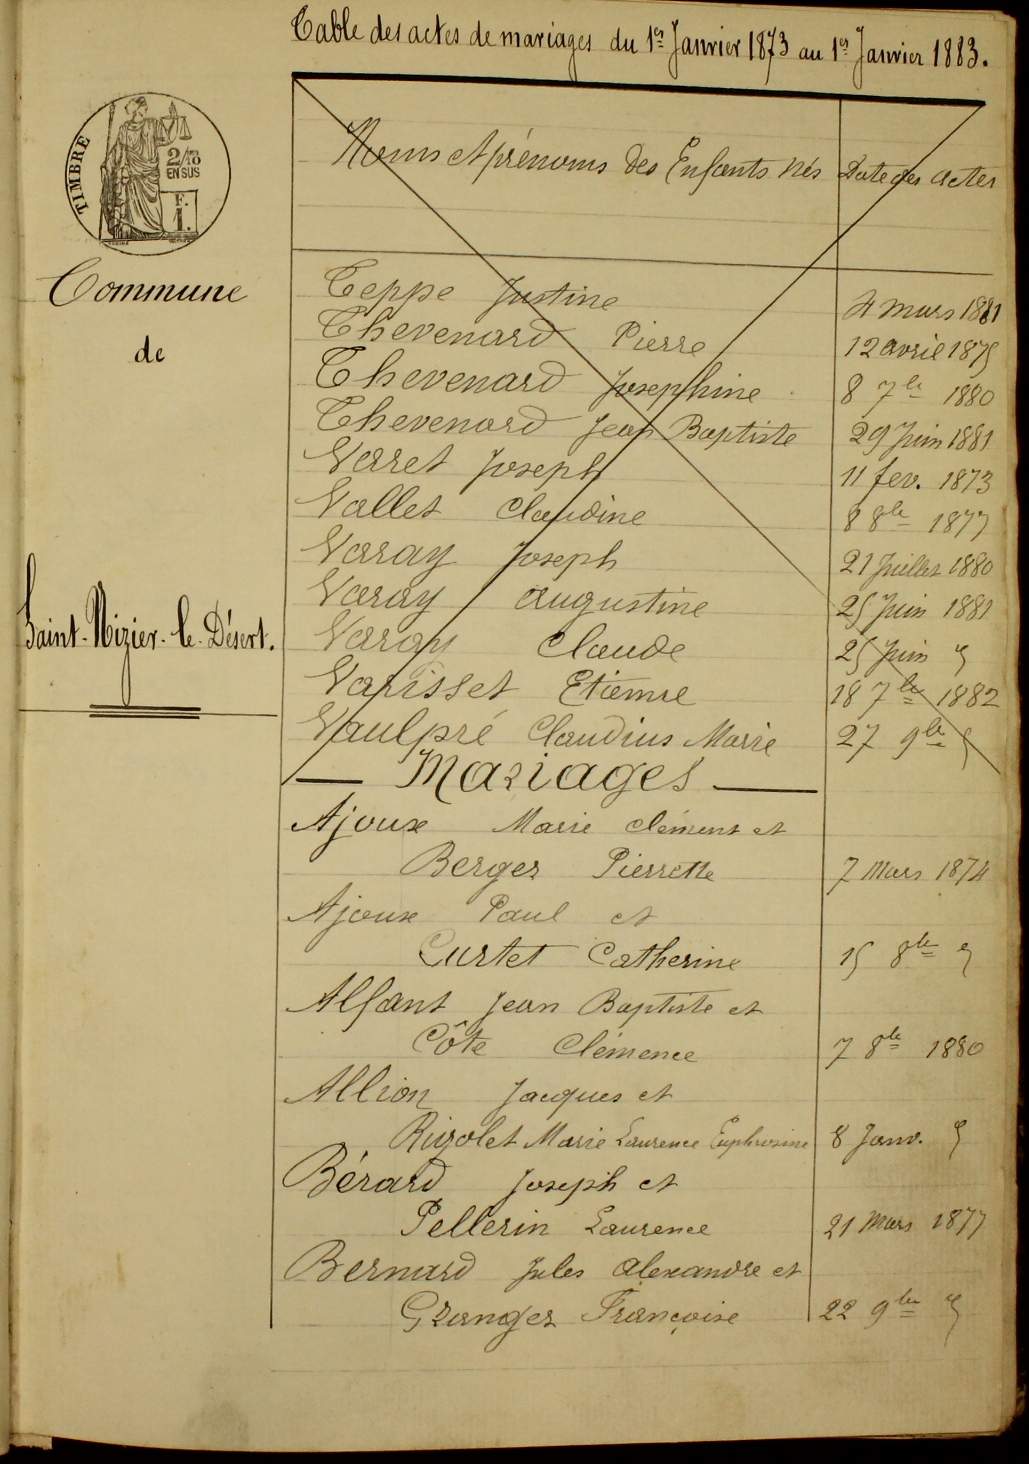 Table des actes de mariages du 1er Janvier 1873 au 1er Janvier 1883.
TIMBRE
2/10
EN SUS
F.
1.
Commune
de
Saint-Nizier-le-Désert.
Noms et prénoms des Enfants nés Date des actes
Teppe Justine 4 mars 1881
Thevenard Pierre 12 avril 1875
Thevenard Josephine 8 7bre 1880
Thevenard Jean Baptiste 29 Juin 1881
Varet Joseph 11 fev. 1873
Vallet Claudine 8 8bre 1877
Varay Joseph 21 Juillet 1880
Varay Augustine 25 Juin 1881
Varay Claude 25 Juin "
Varisset Etienne 18 7bre 1882
Vaulpré Claudius Marie 27 9bre "
Mariages
Ajoux Marie Clément et
Berger Pierrette 7 Mars 1874
Ajoux Paul et
Curtet Catherine 15 8bre "
Alfant Jean Baptiste et
Côte Clémence 7 8bre 1880
Allion Jacques et
Rigolet Marie Laurence Euphrosine 8 Janv. "
Bérard Joseph et
Pellerin Laurence 21 Mars 1877
Bernard Jules Alexandre et
Granger Françoise 22 9bre "